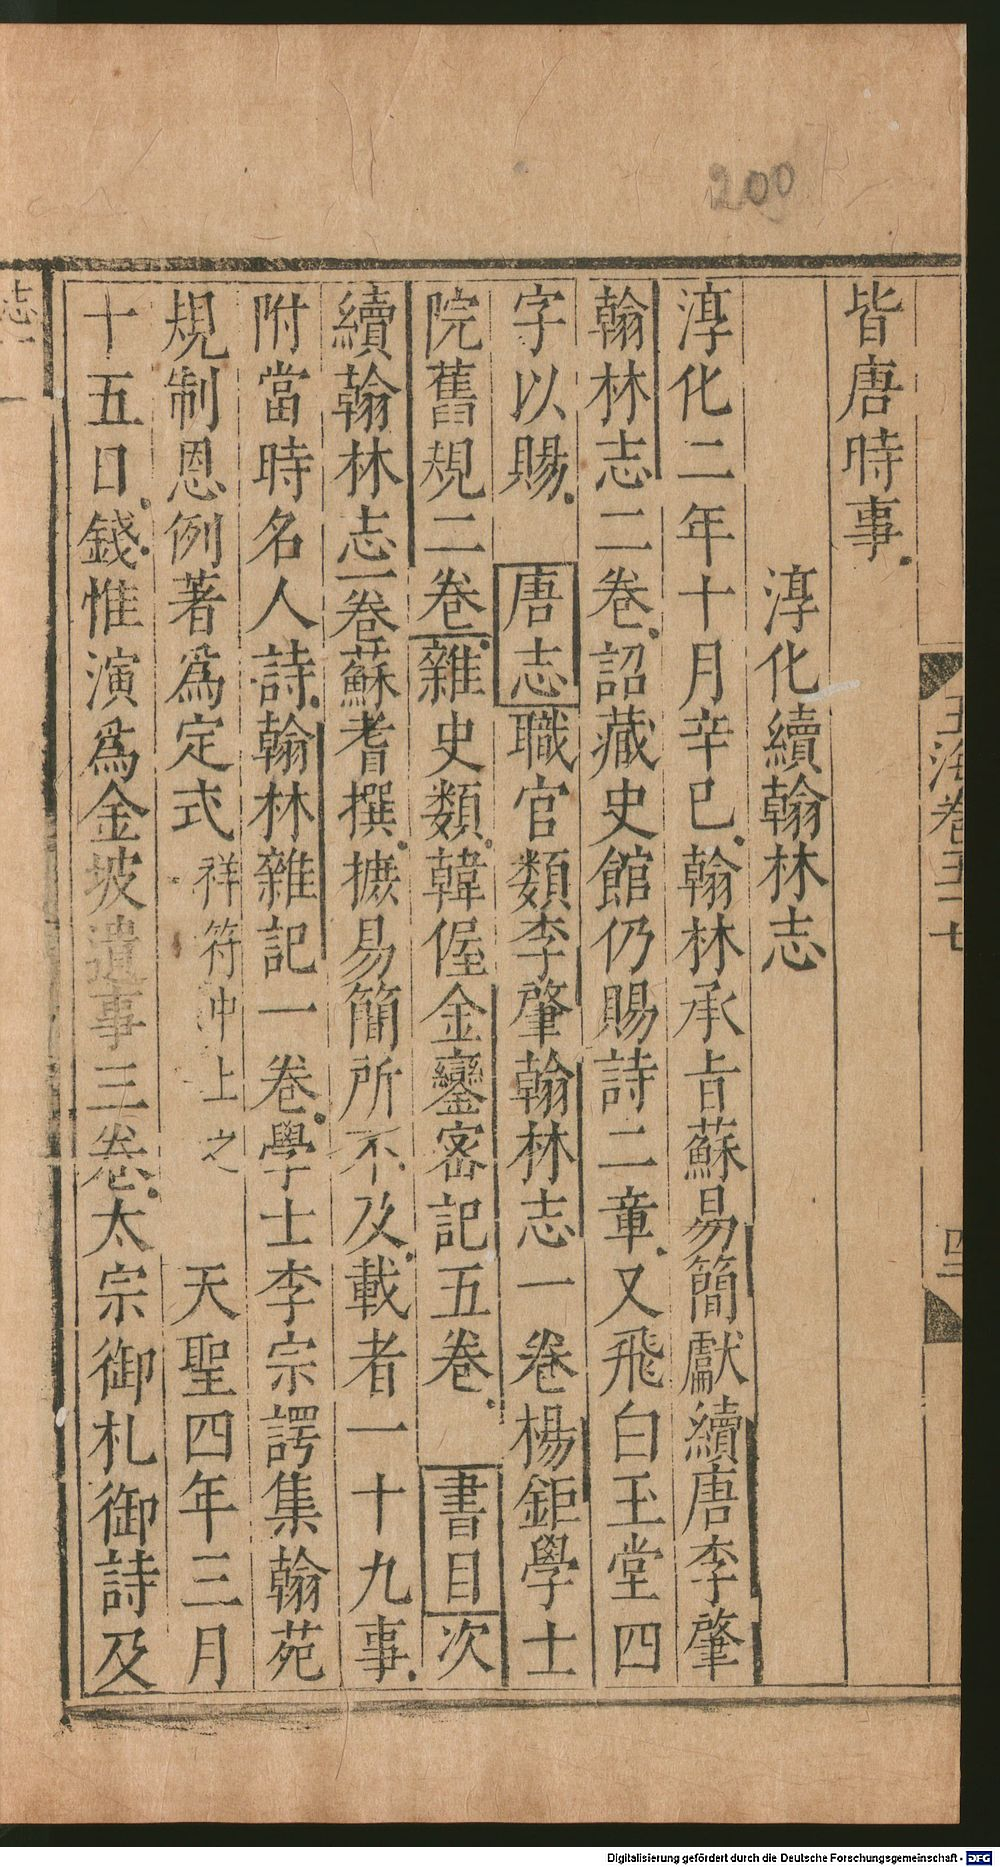 200
玉海卷五十七
四
皆唐時事
淳化續翰林志
淳化二年十月辛巳翰林承旨蘇易簡獻續唐李肇
翰林志二卷詔藏史館仍賜詩二章又飛白玉堂四
字以賜 唐志職官類李肇翰林志一卷楊鉅學士
院舊規二卷雜史類韓偓金鑾密記五卷 書目次
續翰林志一卷蘇耆撰摭易簡所不及載者一十九事
附當時名人詩翰林雜記一卷學士李宗諤集翰苑
規制恩例著為定式祥符中上之 天聖四年三月
十五日錢惟演為金坡遺事三卷太宗御札御詩及
志
Digitalisierung gefördert durch die Deutsche Forschungsgemeinschaft - DFG